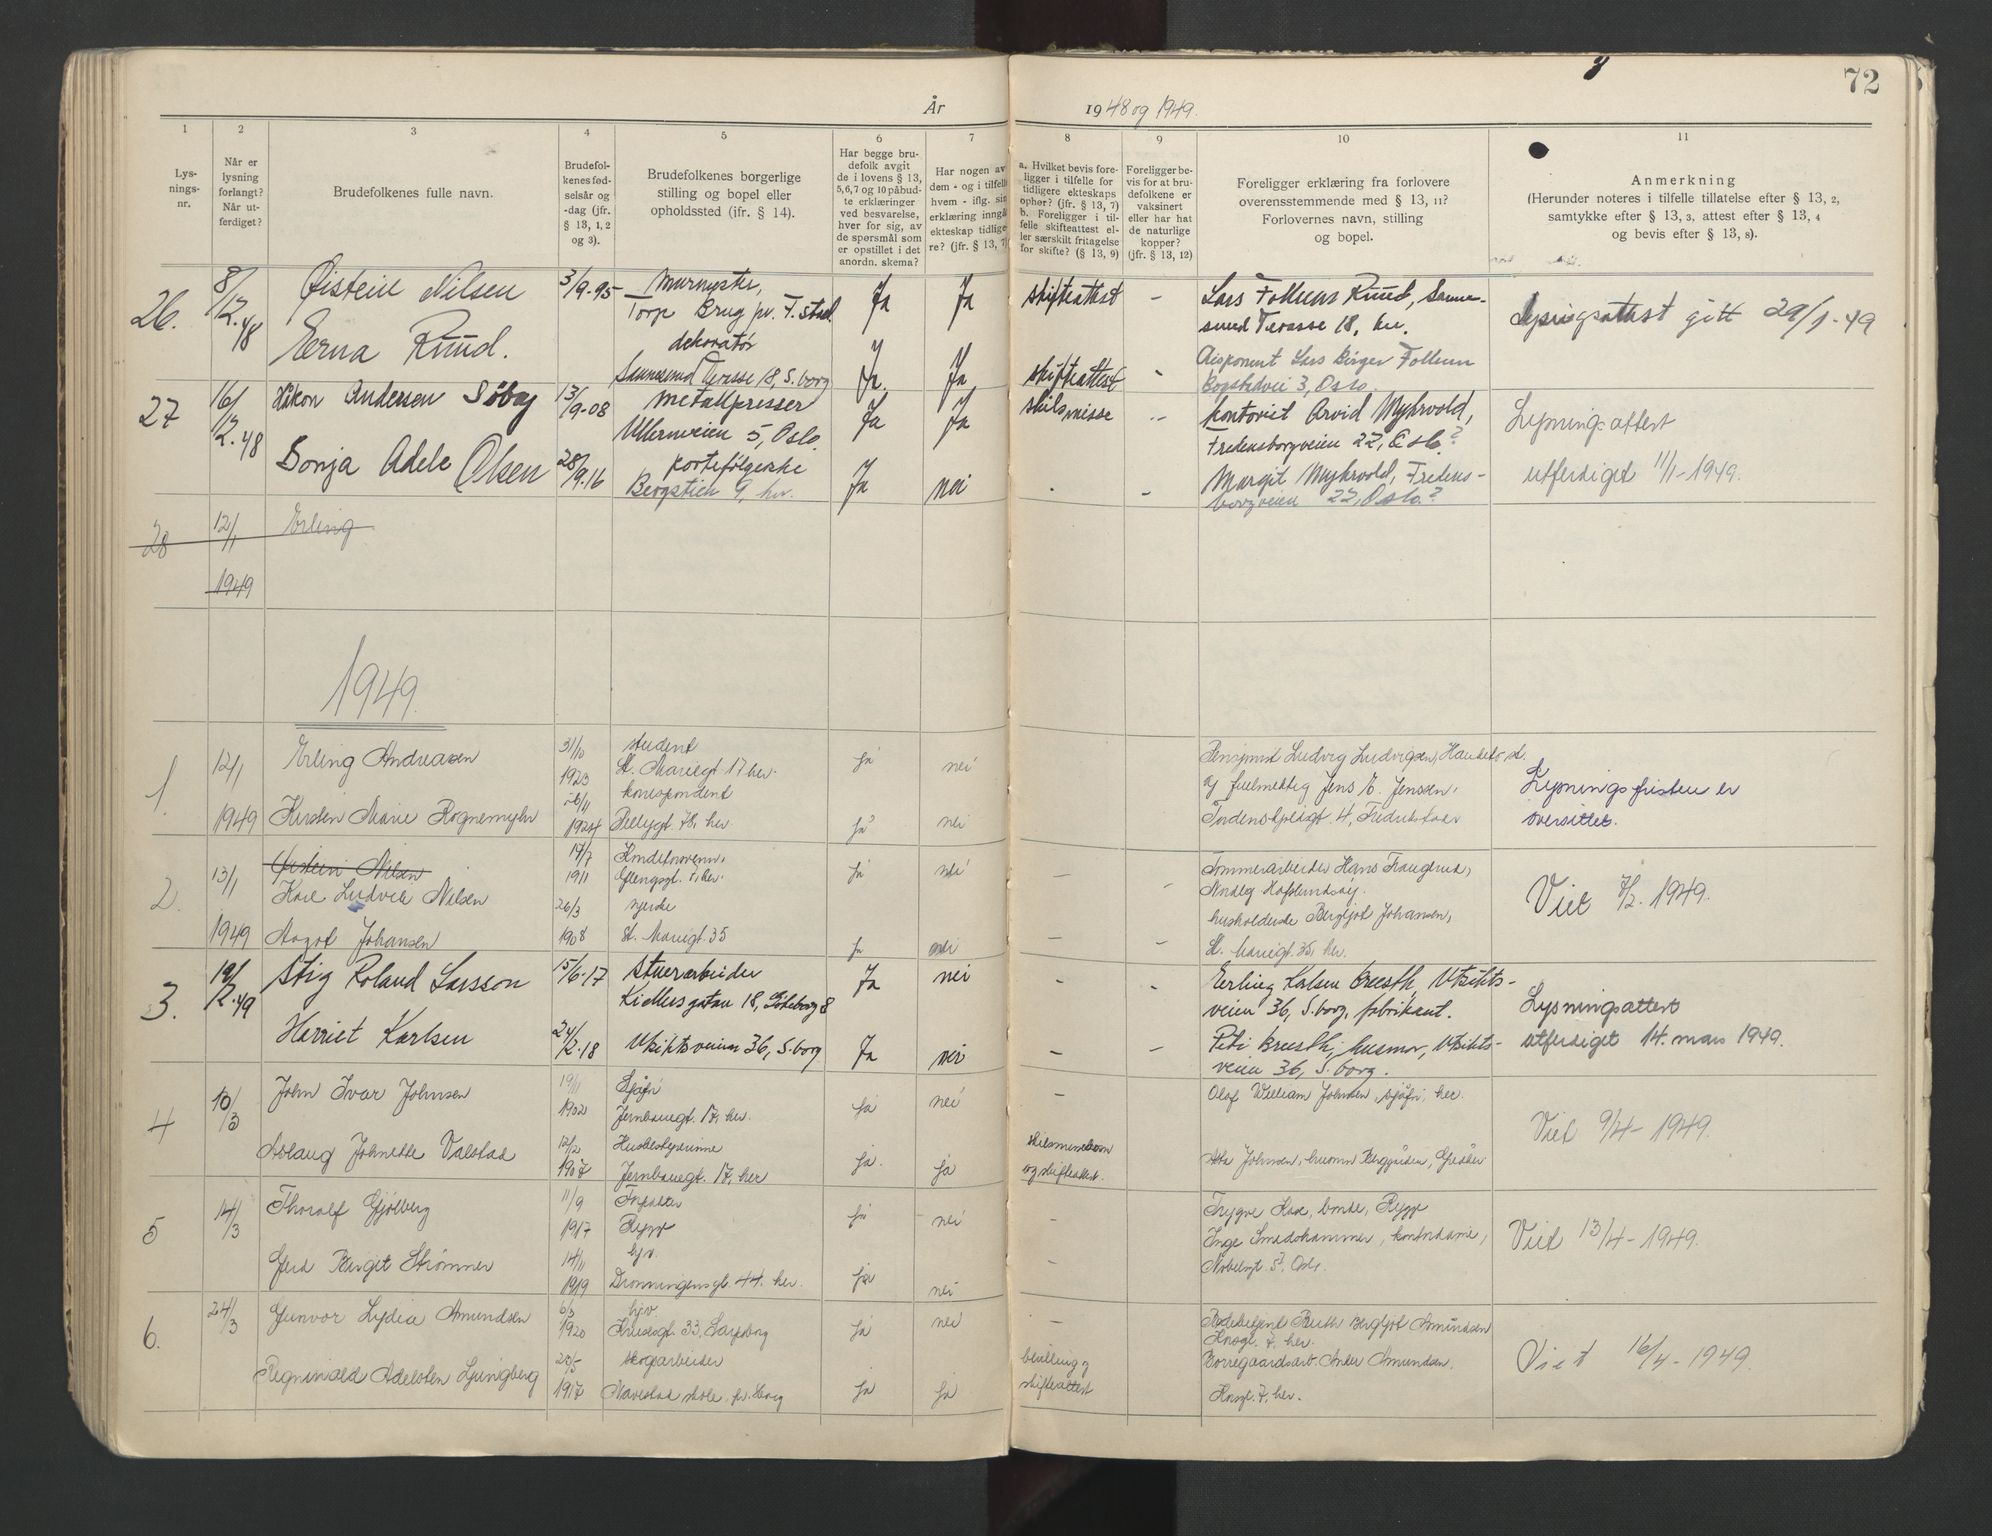 72
År 1948 og 1949.
1 2 3 4 5 6 7 8 9 10 11
Lys-
nings-
nr.
Når er
lysning
forlangt?
Når ut-
ferdiget?
Brudefolkenes fulle navn.
Brudefol-
kenes fød-
selsår og
-dag (jfr.
§ 13, 1, 2
og 3).
Brudefolkenes borgerlige
stilling og bopel eller
opholdssted (ifr. § 14).
Har begge bru-
defolk avgit
de i lovens § 13,
5, 6, 7 og 10 påbud-
te erklæringer
ved besvarelse,
hver for sig, av
de spørsmål som
er opstillet i det
anordn. skema?
Har nogen av
dem - og i tilfelle
hvem - iflg. sin
erklæring inngå
ekteskap tidlige-
re? (jfr. § 13, 7)
a. Hvilket bevis fore-
ligger i tilfelle for
tidligere ekteskaps
ophør? (jfr. § 13, 7)
b. Foreligger i til-
felle skifteattest el-
ler særskilt fritagelse
for skifte? (§ 13, 9)
Foreligger be-
vis for at bru-
defolkene er
vaksinert
eller har hat
de naturlige
kopper?
(jfr. § 13, 12)
Foreligger erklæring fra forlovere
overensstemmende med § 13, 11?
Forlovernes navn, stilling
og bopel.
Anmerkning
(Herunder noteres i tilfelle tillatelse efter § 13, 2,
samtykke efter § 13, 3, attest efter § 13, 4
og bevis efter § 13, 8).
26. 8/12.48 Øistein Nilsen 3/9-95 Murmester, Ja Ja skifteattest - Lars Follum Ruud, Sanne-
Torp Brug pr. F.stad. sund Terasse 18, her. Lysningsattest gitt 29/1-49
Erna Ruud. dekoratør Ja Ja skifteattest - Disponent Lars Birger Follum
Sannesund Terasse 18, S.borg Bogstadvei 3, Oslo.
27 16/12.48 Håkon Andersen Søby 13/9-08 metallpresser Ja Ja skilsmisse - kontorist Arvid Myhrvold, Lysningsattest
Ullernveien 5, Oslo. Fredensborgveien 22, Oslo?
Sonja Adele Olsen 28/9.16 Ja nei - Margit Myhrvold, Fredens- utferdiget 11/1-1949.
Bergstien 9, her. borgveien 22, Oslo?
28 12/1 Erling
1949
1949.
1 12/1 Erling Andreasen 31/10 student ja nei Ludvig Ludvigsen,
1923 St. Mariegt. 17 her. og fullmektig Jens E. Jenssen, Lysningsfristen er
1949 Kirsten Marie Rognemyhr 26/11 korrespondent ja nei Tordenskjoldsgt. 4, Fredrikstad oversittet.
1924 Pellygt. 78, her.
2. 13/1 Øistein Nilsen 14/7 ja nei - - Tømmerarbeider Hans Haugerud,
Karl Ludvik Nilsen 1911 her. Hafslundsøy. Viet 7/2. 1949.
26/3 syerske husholderske Bergljot Johansen,
1949 Aagot Johansen 1908 St. Mariegt. 35 ja nei - - St. Mariegt. 35, her.
3. 19/2.49 Stig Roland Larsson 15/6-17 Stuerarbeider Ja nei - - Erling Kalsen Breeth, Utsikts-
Kiellers gatan 18, Göteborg 8 veien 36, S.borg, fabrikant. Lysningsattest
Herriet Karlsen 24/12-18 Utsiktsveien 36, S.borg Ja nei - - Breeth, husmor, Utsikts- utferdiget 14. mars 1949.
veien 36, S.borg.
4 10/3 John Ivar Johnsen 19/11 Sjåfør ja nei - Olaf William Johnsen, sjåfør, her.
1902 Jernbanegt. 17, her. Viet 9/4-1949.
Aslaug Johnette Valstad 12/2 Husbestyrerinne ja. ja og skifteattest. Johnsen, husmor, Greåker
1907 Jernbanegt. 17, her
5 14/3 Thoralf Gjølberg 11/9 ja nei - Trygve bonde, Rygge
1917 Rygge Inge Smedshammer, kontordame, Viet 13/4-1949.
Gerd Margit Strømner 14/11 hjv. ja nei - Nobelsgt. 5, Oslo.
1919 Dronningensgt. 44. her.
6. 24/3 Gunvor Lydia Amundsen 6/3 hjv ja nei - Ruth Bergljot Amundsen
1920 Krusesgt. 33, Sarpsborg 7, her.
Regnivald Adelsten Ljungberg 23/5 skogsarbeider ja ja bevilling og Borregaardsarb. Ander Amundsen, Viet 16/4-1949.
1917 Navestad skole, skifteattest 7, her.